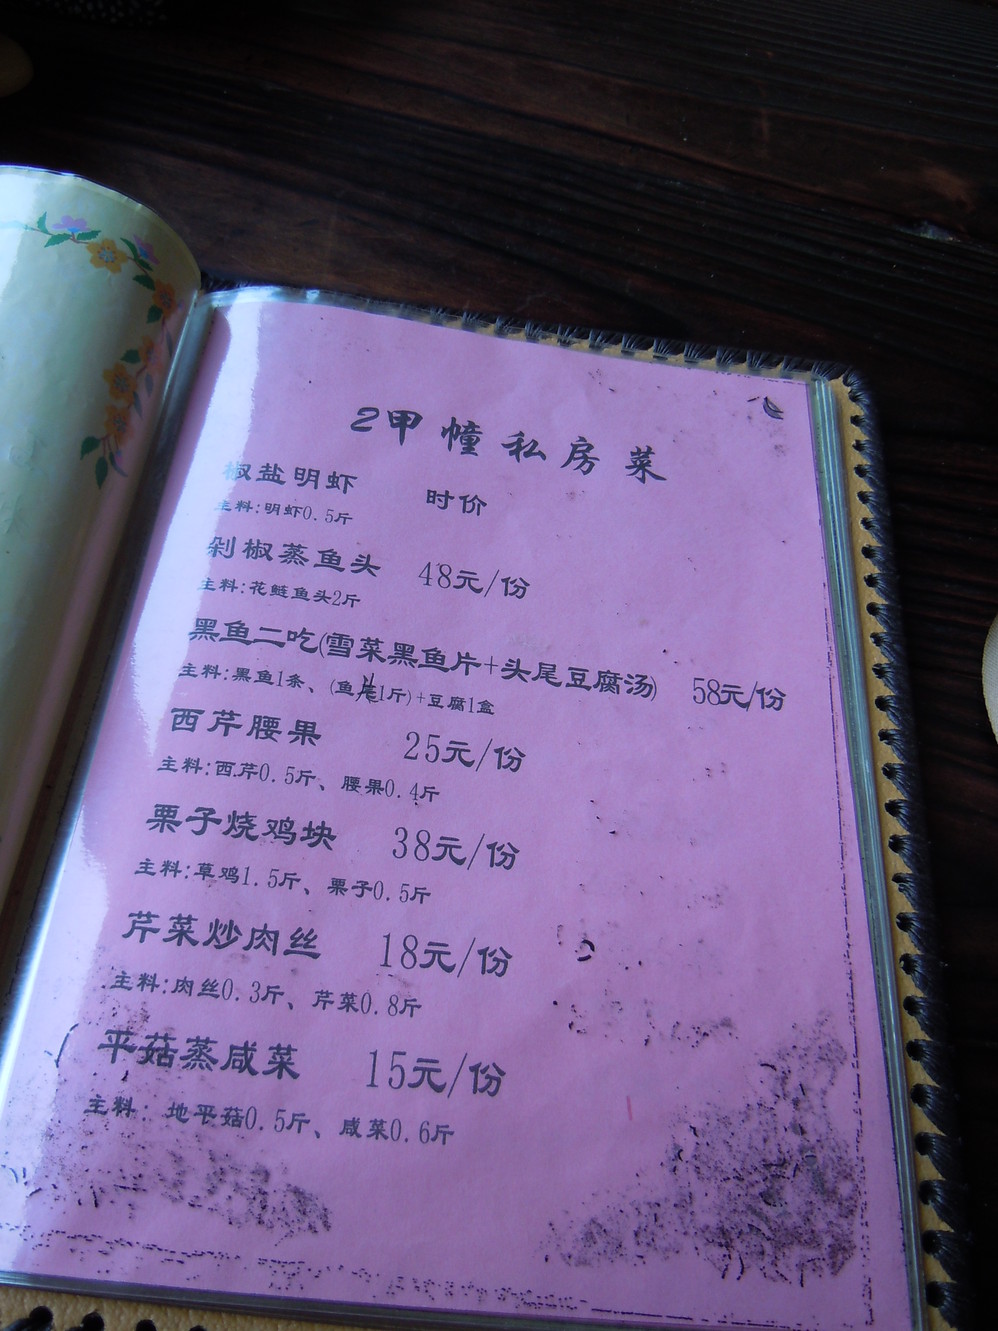 2甲幢私房菜
椒盐明虾 时价
主料:明虾0.5斤
剁椒蒸鱼头 48元/份
主料:花鲢鱼头2斤
黑鱼二吃(雪菜黑鱼片+头尾豆腐汤) 58元/份
主料:黑鱼1条、(鱼1斤)+豆腐1盒
西芹腰果 25元/份
主料:西芹0.5斤、腰果0.4斤
栗子烧鸡块 38元/份
主料:草鸡1.5斤、栗子0.5斤
芹菜炒肉丝 18元/份
主料:肉丝0.3斤、芹菜0.8斤
平菇蒸咸菜 15元/份
主料: 地平菇0.5斤、咸菜0.6斤